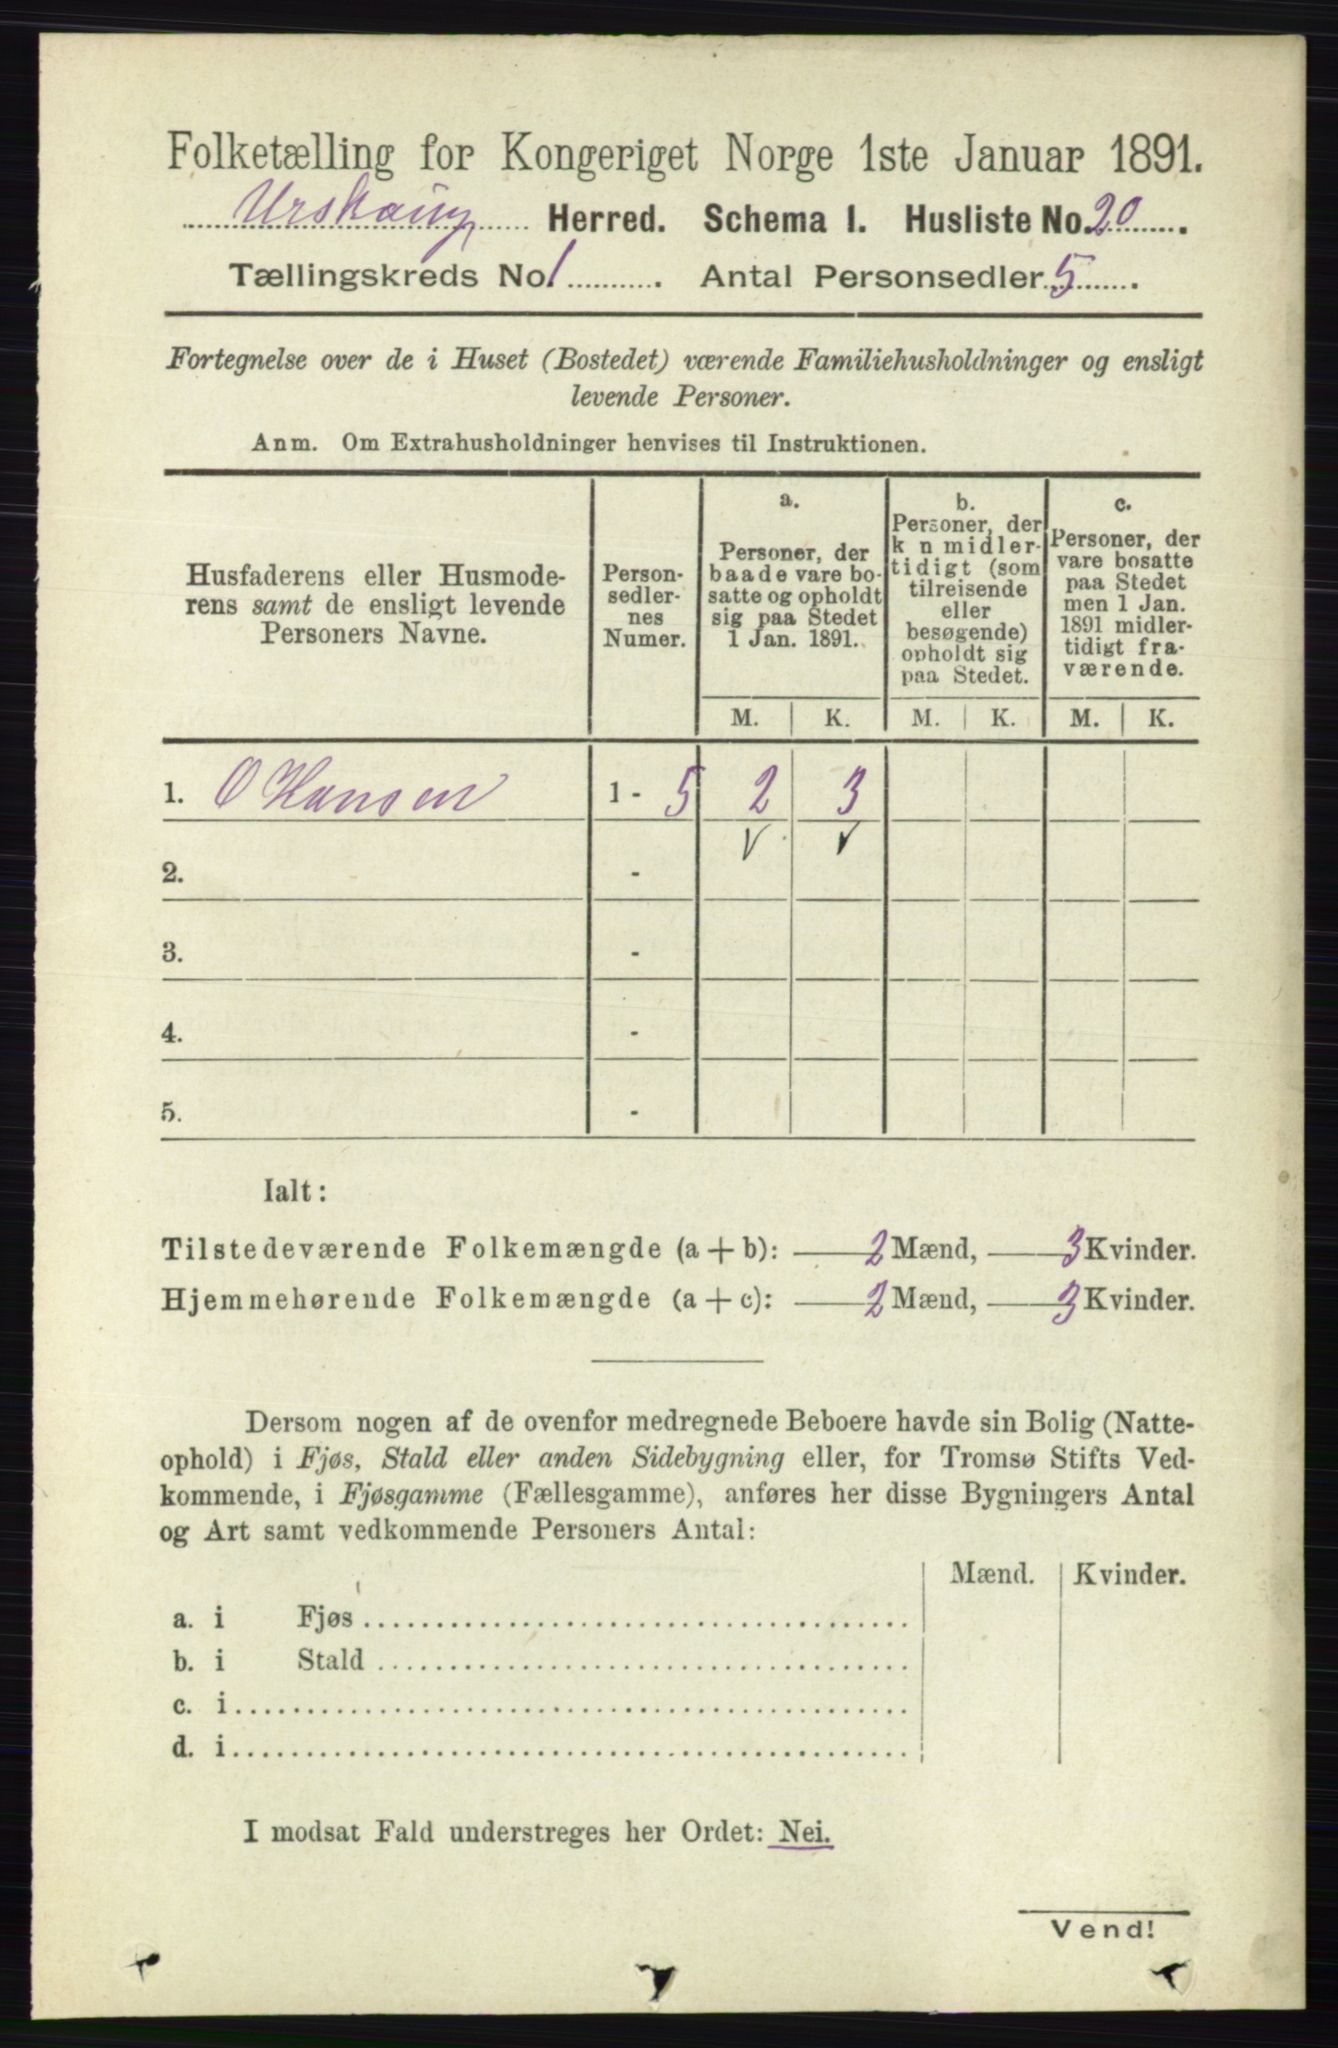 Folketælling for Kongeriget Norge 1ste Januar 1891.
Urskoug Herred. Schema I. Husliste No. 20
Tællingskreds No. 1 Antal Personsedler 5
Fortegnelse over de i Huset (Bostedet) værende Familiehusholdninger og ensligt
levende Personer.
Anm. Om Extrahusholdninger henvises til Instruktionen.
Husfaderens eller Husmode-
rens samt de ensligt levende
Personers Navne.
Person-
sedler-
nes
Numer.
a.
Personer, der
baade vare bo-
satte og opholdt
sig paa Stedet
1 Jan. 1891.
b.
Personer, der
k n midler-
tidigt (som
tilreisende
eller
besøgende)
opholdt sig
paa Stedet.
c.
Personer, der
vare bosatte
paa Stedet
men 1 Jan.
1891 midler-
tidigt fra-
værende.
M. K. M. K. M. K.
1. O Hansen 1 - 5 2 3
2. -
3. -
4. -
5. -
Ialt:
Tilstedeværende Folkemængde (a + b): 2 Mænd, 3 Kvinder.
Hjemmehørende Folkemængde (a + c): 2 Mænd, 3 Kvinder.
Dersom nogen af de ovenfor medregnede Beboere havde sin Bolig (Natte-
ophold) i Fjøs, Stald eller anden Sidebygning eller, for Tromsø Stifts Ved-
kommende, i Fjøsgamme (Fællesgamme), anføres her disse Bygningers Antal
og Art samt vedkommende Personers Antal:
Mænd. Kvinder.
a. i Fjøs
b. i Stald
c. i
d. i
I modsat Fald understreges her Ordet: Nei.
Vend!